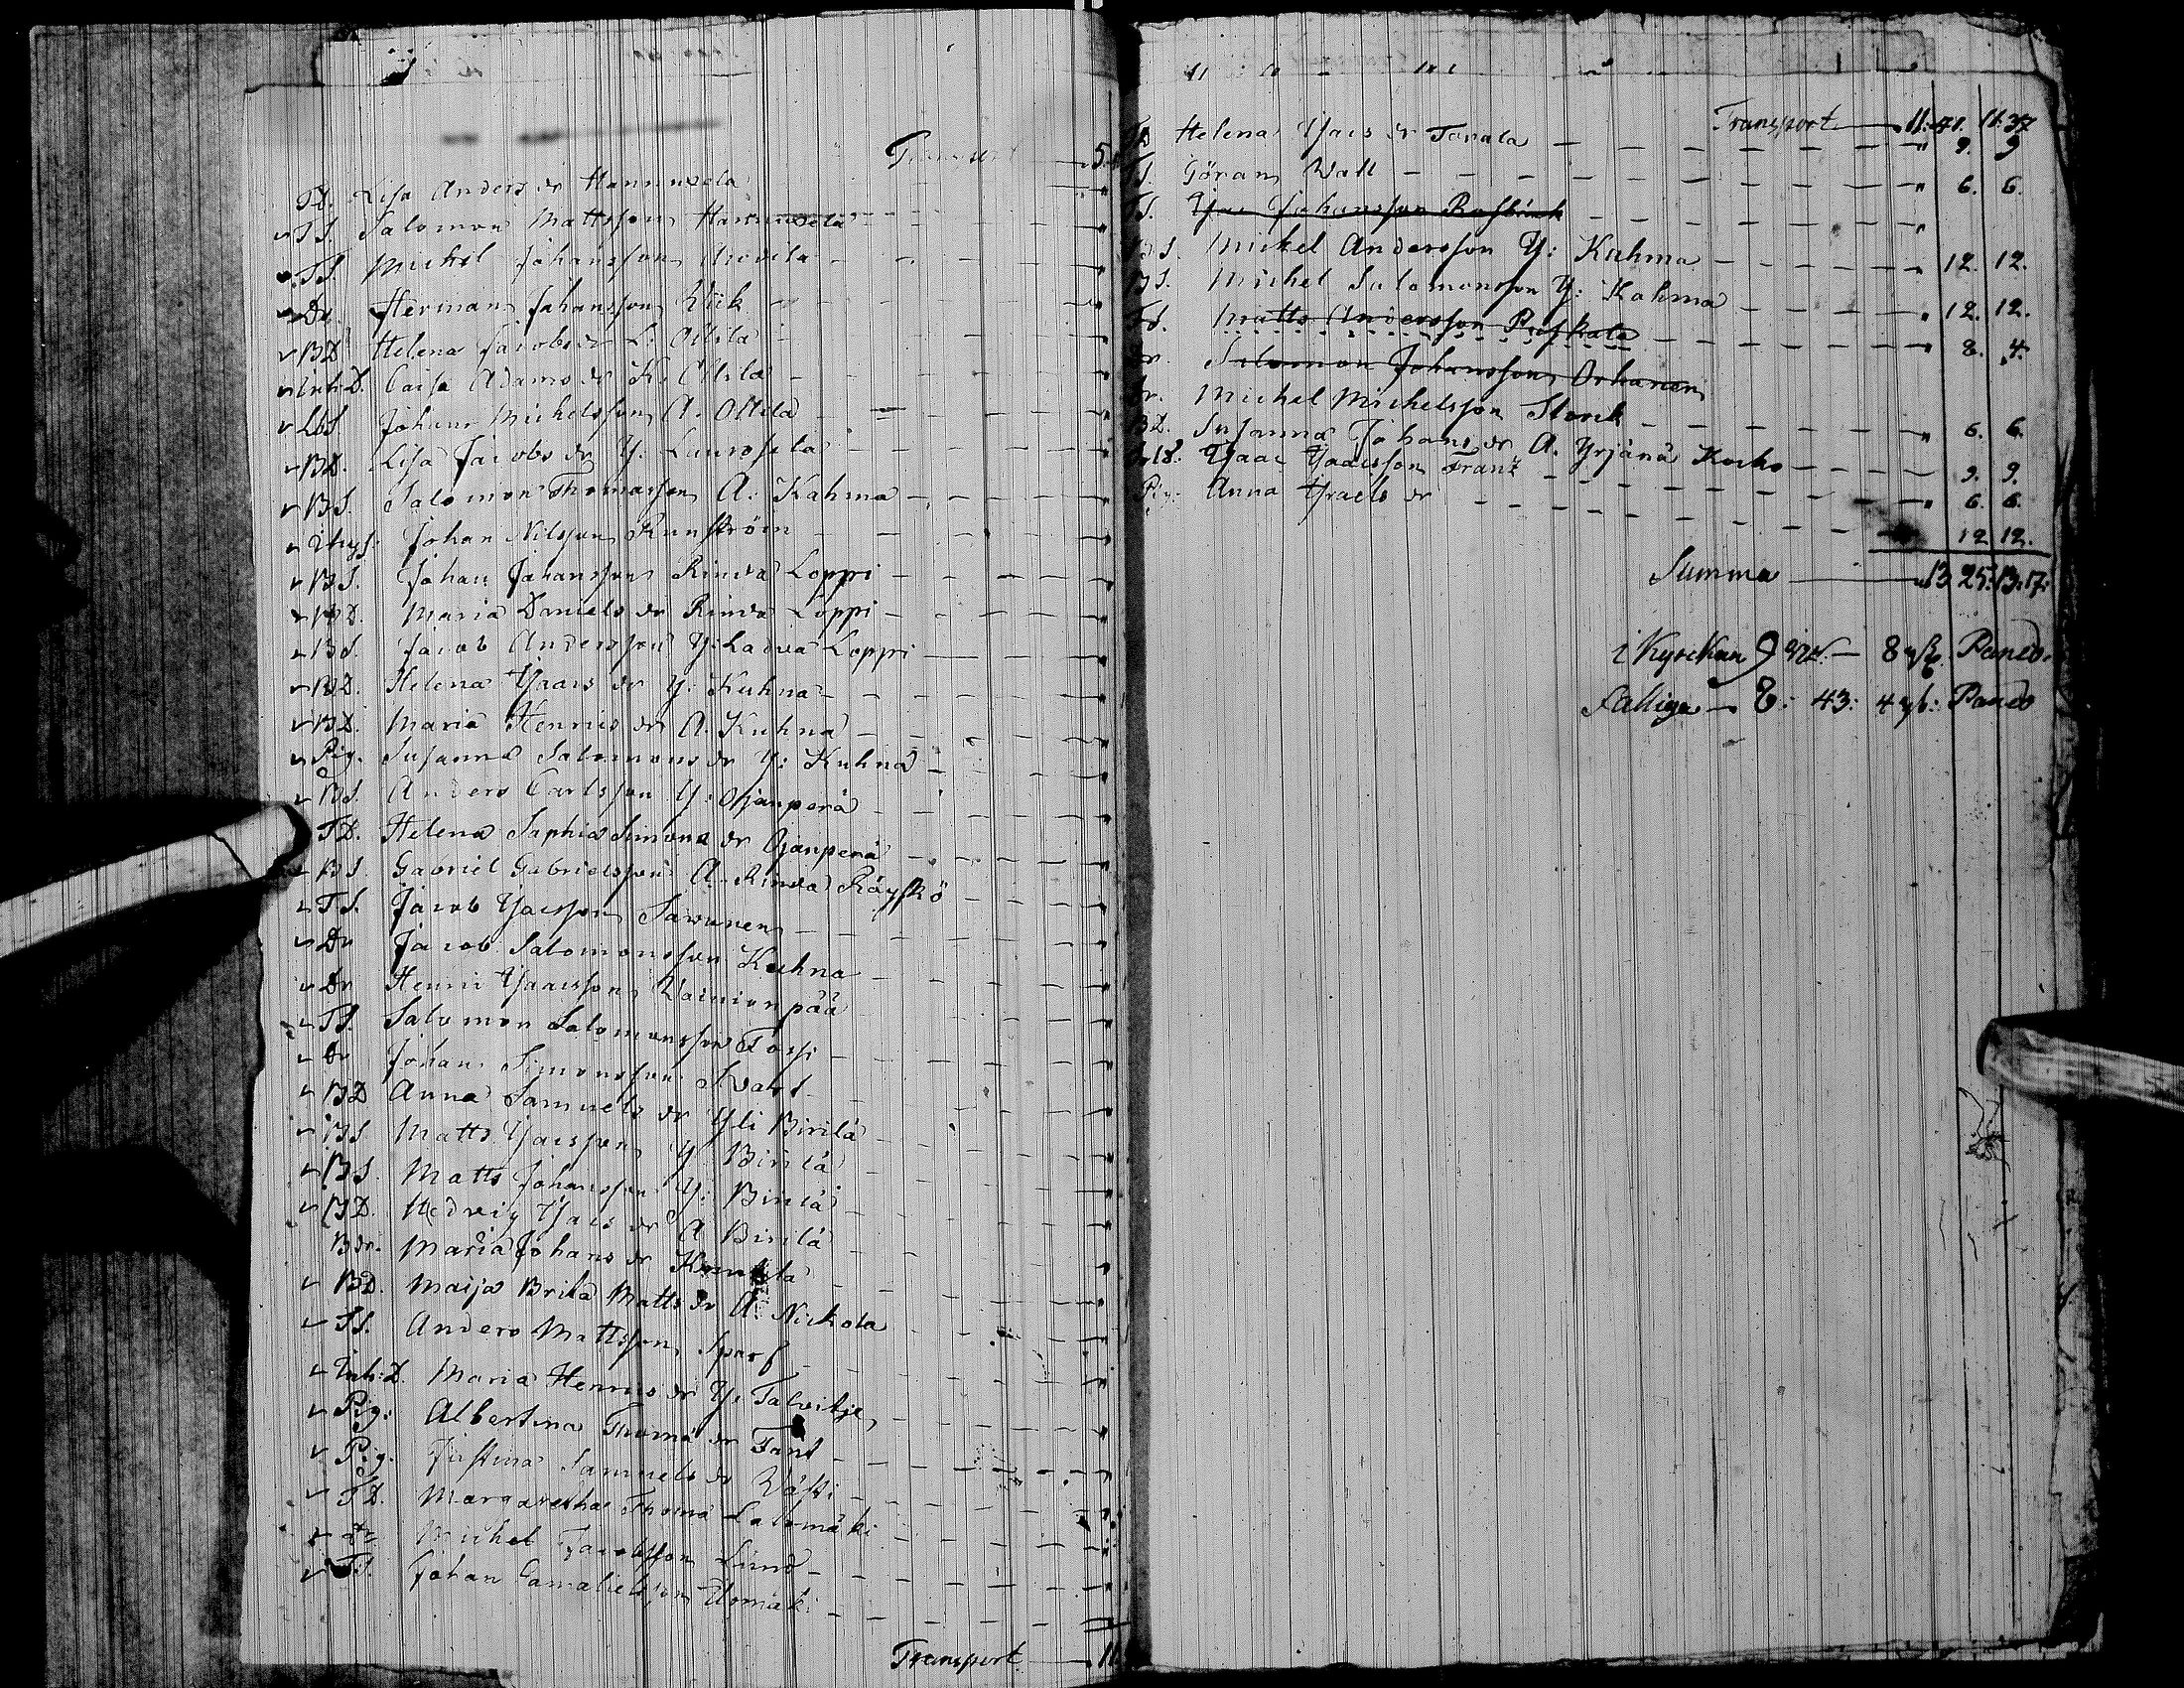 Transport 5
TD. Lisa Anders dr Hannuxela
TS. Salomon Mattsson Hannuxela
TS. Michel Johansson Anvila
Dr. Herman Johansson Wik
BD Helena Jacobs dr L. Ollila
Inh:D. Caisa Adams dr K. Ollila
LbS. Johan Michelsson A. Ollila
BD. Lisa Jacobs dr Y. Laurosela
BS. Salomon Thomasson A. Kahma
Inhys: Johan Nilsson Runström
BS. Johan Johansson Rinva Loppi
BD. Maria Daniels dr Rinva Loppi
BS. Jacob Andersson Y: Ladva Loppi
BD. Helena Isaacs dr Y. Kuhna
BD. Maria Henrics dr A. Kuhna
Pig. Susanna Salomons dr Y: Kuhna
BS. Anders Carlsson Y: Ojanperä
TD. Helena Sophia Simons dr Ojanperä
BS Gabriel Gabrielsson A. Rinva Räyskö
TS. Jacob Isacsson Savunen
Dr Jacob Salomonsson Kuhna
Dr Henric Isaacsson Wainionpää
TS. Salomon Salomonsson Tossi
Dr Johan Simonsson Svart
BD Anna Samuels dr Yli Birilä
BS Matts Isacsson Y. Birilä
BS Matts Johansson Y: Birilä
BD. Hedvig Isacs dr A Birilä
Bdr. Maria Johans dr
BD. Maija Brita Matts dr A. Nickola
TS. Anders Mattsson Sparf
Inh:D. Maria Henrics dr Y. Talvitje
Pig: Albertina Thoma dr Fant
Pig. Justina Samuels dr Wästi
TD. Margaretha Thoma Lalomäki
Dr Michel Jacobsson Lund
TS. Johan Gamalielsson Elomäki
Transport 11
Transport 11: 41. 11. 37
TD Helena Isacs dr Tanala " 9. 9
TS. Göran Wall " 6. 6.
TS. Isac Johansson Rosbäck "
BS. Mickel Andersson Y: Kuhna " 12. 12.
BS. Michel Salomonsson Y: Kahma " 12. 12.
TS. Matts Andersson Paskala " 8. 4.
Dr. Salomon Johansson Orhanen
Dr. Michel Michelsson Stork " 6. 6.
BD. Susanna Johans dr A. Yrjänä Kocko 9. 9.
Isaac Isaacsson Franz " 6. 6.
Pig. Anna Israels dr 12 12.
Summa 13 25: 13: 17:
i Kyrckan 9 8 Pared.
Salliga 8: 43: 4 Pared